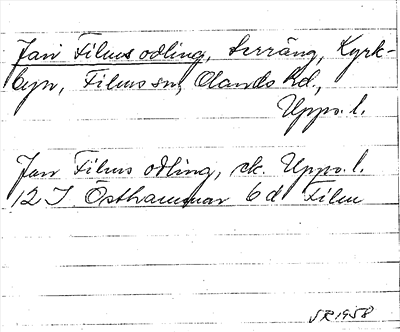 Jan Films odling, Serräng, Kyrk-
byn, Films sn, Olands hd,
Upps. l.
Jan Films odling, ek. Upps. l.
12 I Östhammar 6 d Film
SR 1958